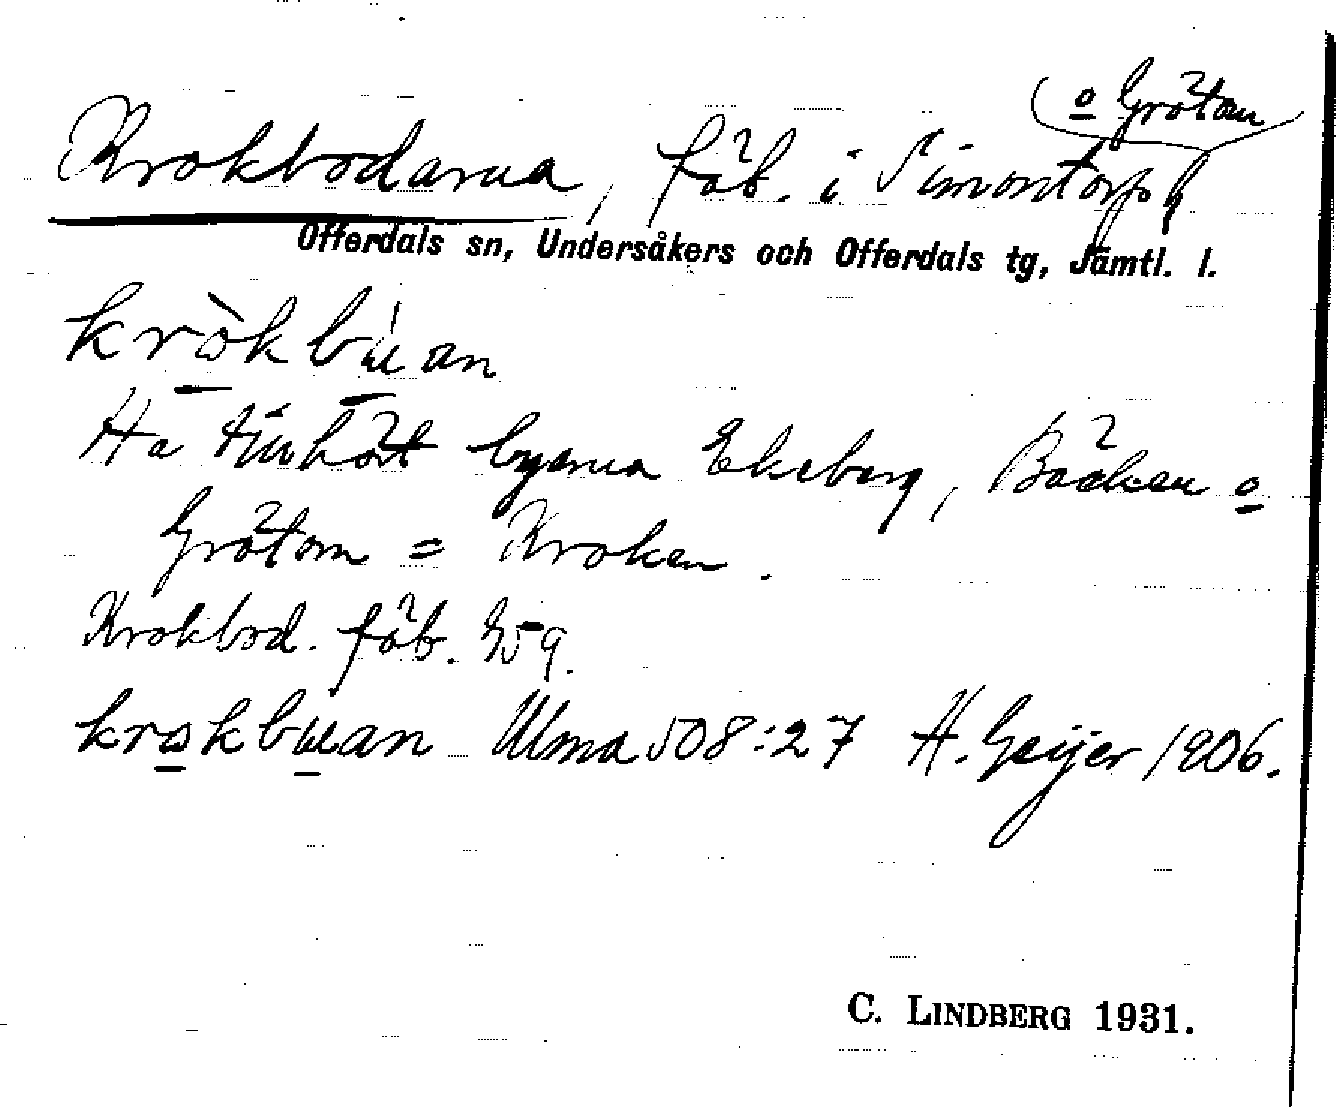 Krokbodarna, fäb. i Simontorp (o Grötom)
Offerdals sn, Undersåkers och Offerdals tg, Jämtl. l.
kròkbu̇an
Ha tillhört byarna Ekeberg, Bäcken o
Grötom = Kroken.
Krokbod. fäb. G59.
krokbuan Ulma 508:27 H. Geijer 1906.
C. LINDBERG 1931.